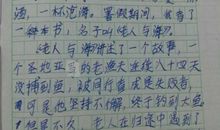 酒，一杯泡沫。暑假期间，我看了
一本书，名字叫《老人与海》。
《老人与海》讲述了一个故事，一
个圣地亚哥的老渔夫连续八十四天
没捕到鱼，被同行看成是失败者，
可是他坚持不懈，终于钓到大鱼
但是不久，老人在归途中遇到了